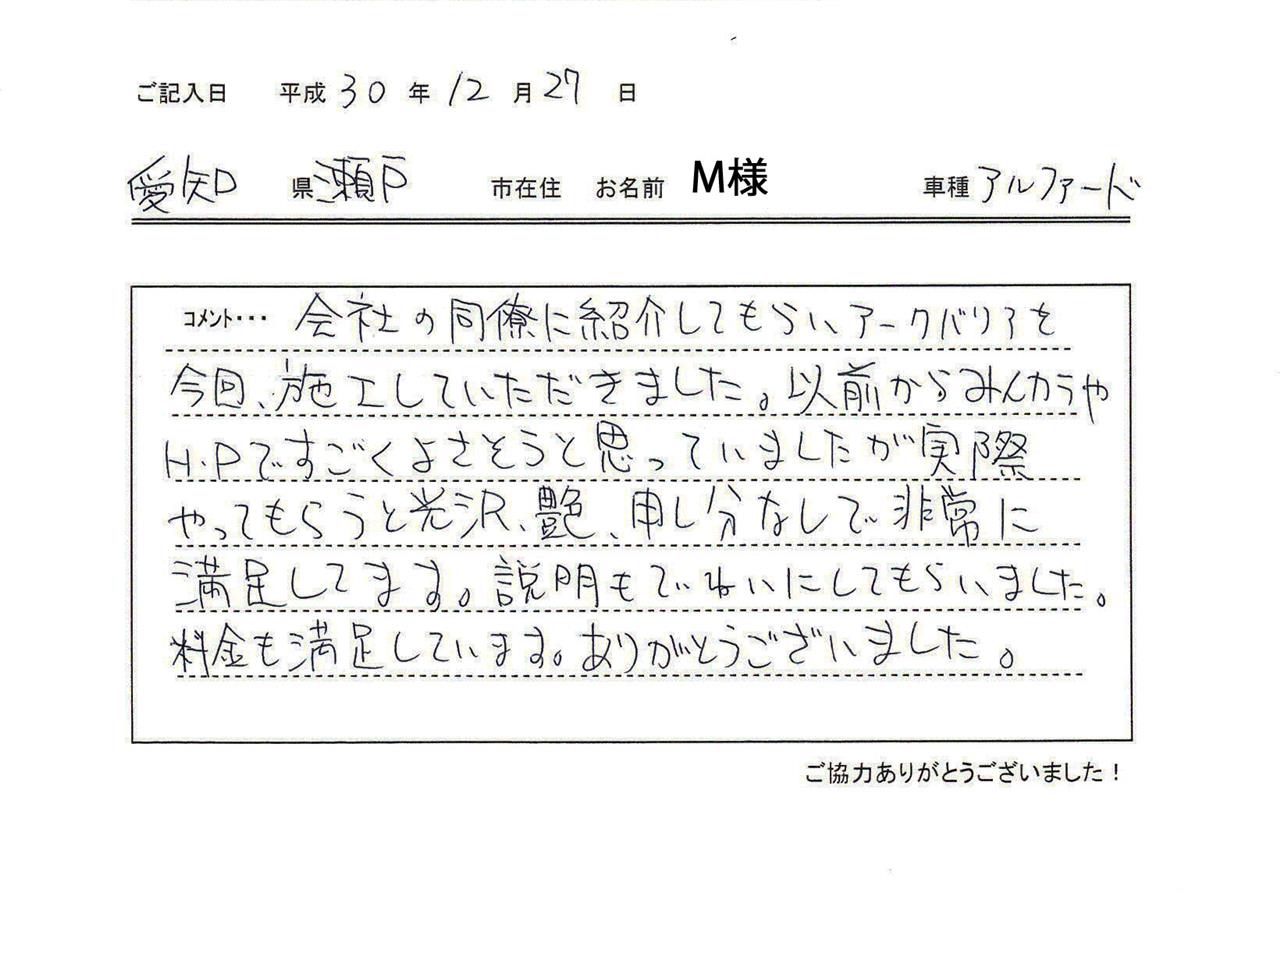 ご記入日 平成 30 年 12 月 27 日
愛知 県 瀬戸 市在住 お名前 M様 車種 アルファード
コメント・・・ 会社の同僚に紹介してもらい、アークバリアを
今回、施工していただきました。以前からみんカラや
H.Pですごくよさそうと思っていましたが実際
やってもらうと光沢、艶、申し分なしで非常に
満足してます。説明もていねいにしてもらいました。
料金も満足しています。ありがとうございました。
ご協力ありがとうございました！